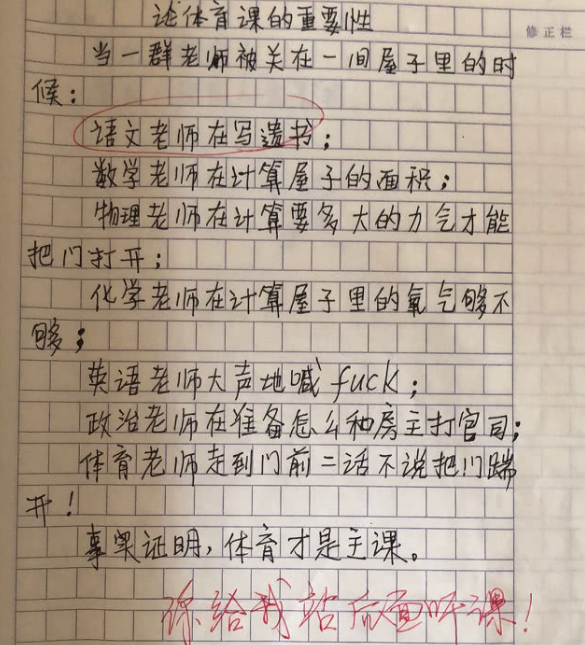 论体育课的重要性
修正栏
当一群老师被关在一间屋子里的时
候：
语文老师在写遗书；
数学老师在计算屋子的面积；
物理老师在计算要多大的力气才能
把门打开；
化学老师在计算屋子里的氧气够不
够；
英语老师大声地喊fuck；
政治老师在准备怎么和房主打官司；
体育老师走到门前二话不说把门踹
开！
事实证明，体育才是主课。
你给我站后面听课！